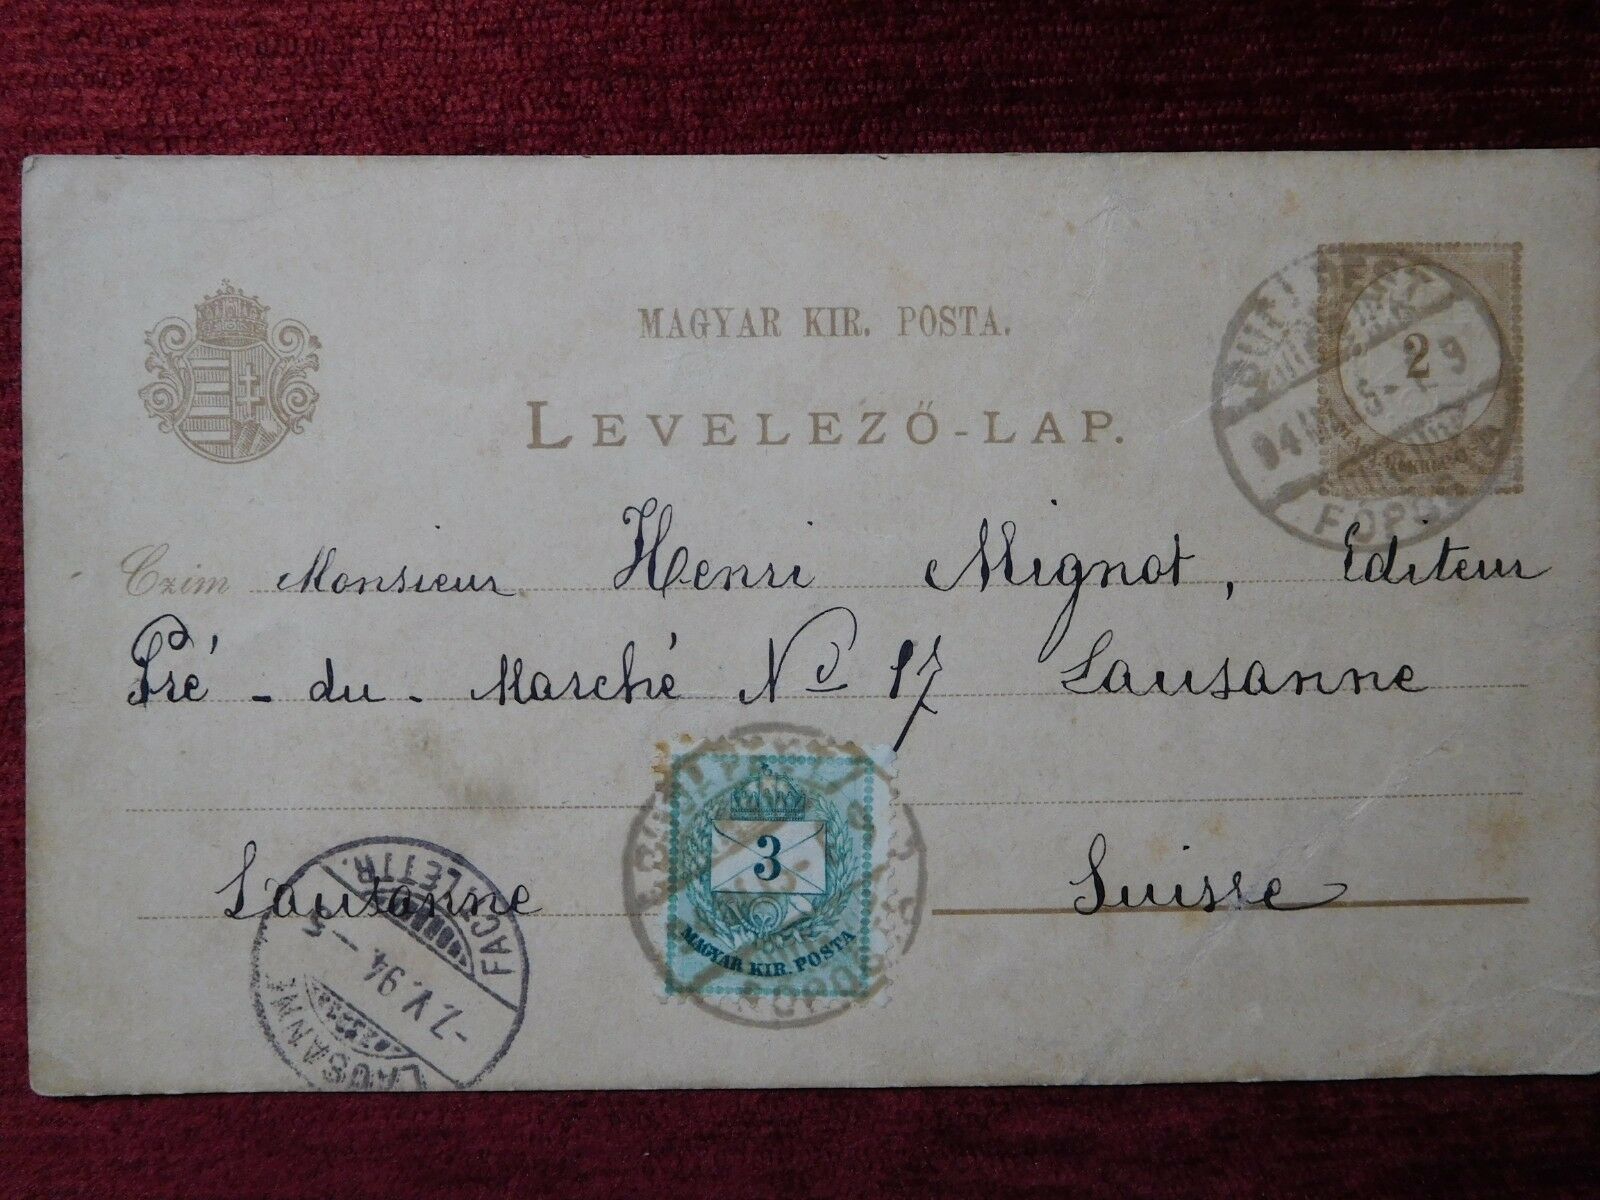 MAGYAR KIR. POSTA.
LEVELEZŐ-LAP.
2
BUDAPEST
FŐPOSTA
Czim Monsieur Henri Mignot, Editeur
Pré - du - Marché No 17 Lausanne
3
MAGYAR KIR. POSTA
BUDAPEST
FŐPOSTA
Lausanne Suisse
LAUSANNE
-7.V.94.-5
FACT. LETTR.